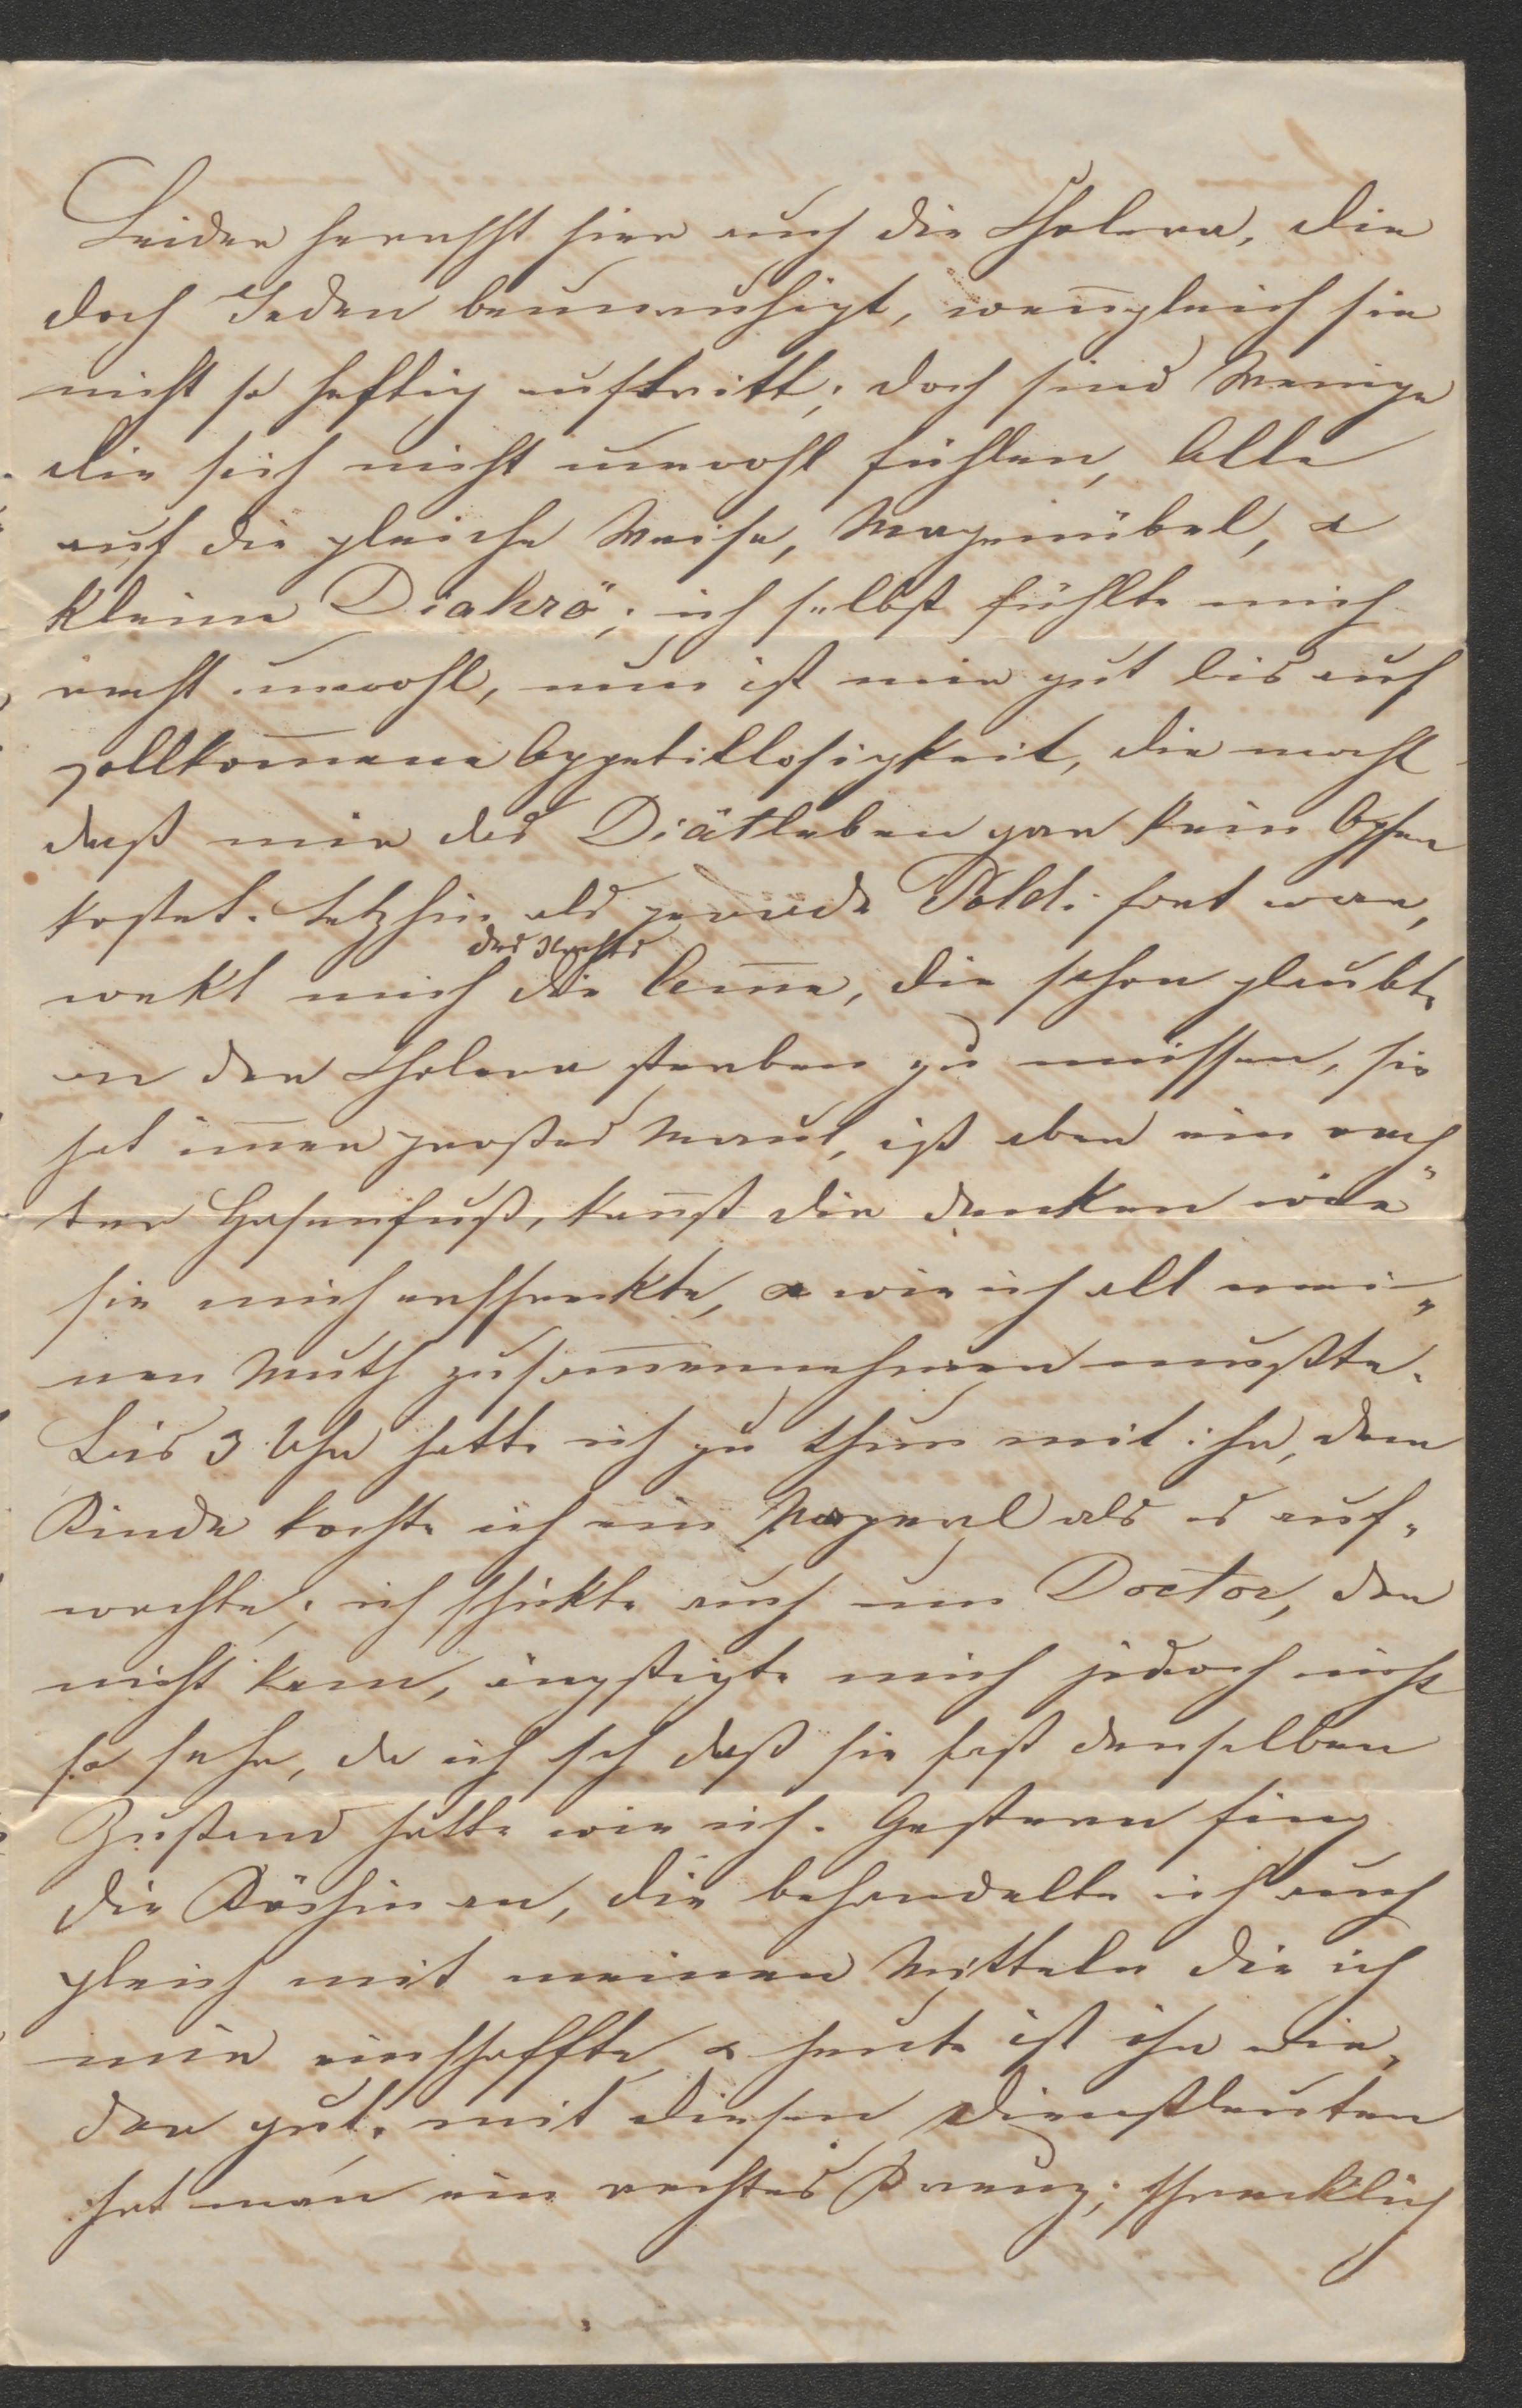 Leider herrscht hier auch die Cholera, die
doch Jeden beunruhigt, weñgleich sie
nicht so heftig auftritt; doch sind Wenige
die sich nicht unwohl fühlen, Alle
auf die gleiche Weise, Magenübel, &
kleine Diahrö; ich selbst fühlte mich
recht unwohl, nun ist mir gut bis auf
vollkom̄ene Appetittlosigkeit, die macht
daß mir das Diätleben gar kein Opfer
kostet. Letzhin als gerade Poldi fort war,
des Nachts
wekt mich die Am̄e, die schon glaubte
an der Cholera sterben zu müssen, sie
hat im̄er großes Maul, ist aber ein rech„
ter Hasenfuß, kan̄st dir denken wie
sie mich erschreckte, & wie ich all mei„
nen Muth zusam̄ennehmen mußte.
Bis 3 Uhr hatte ich zu thun mit ihr, dem
Kinde kochte ich ein als es auf„
wachte; ich schikte auch um Doctor, der
nicht kam, ängstigte mich jedoch nicht
so sehr, da ich sah daß sie fast denselben
Zustand hatte wie ich. Gestern fing
die Köchin an, die behandelte ich auch
gleich mit meinen Mitteln die ich
mir einschaffte & heute ist ihr wie„
der gut, mit diesen Dienstleuten
hat man ein rechtes Kreuz; schrecklich